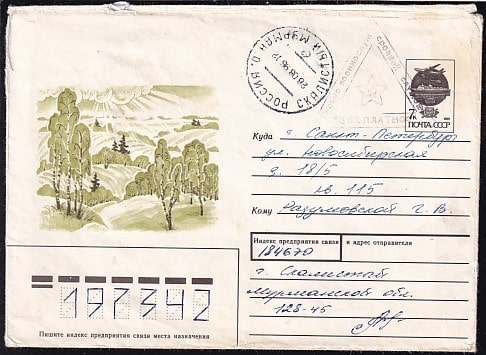 РОССИЯ СКАЛИСТЫЙ МУРМАН. О.
28 08 96 12
БЕСПЛАТНО
7к
ПОЧТА СССР
Куда г. Санкт-Петербург
ул. Новосибирская
д. 18/5
кв. 115
Кому Разумовской Г. В.
Индекс предприятия связи и адрес отправителя
184670
г. Скалистый
Мурманской обл.
128-45
197342
Пишите индекс предприятия связи места назначения